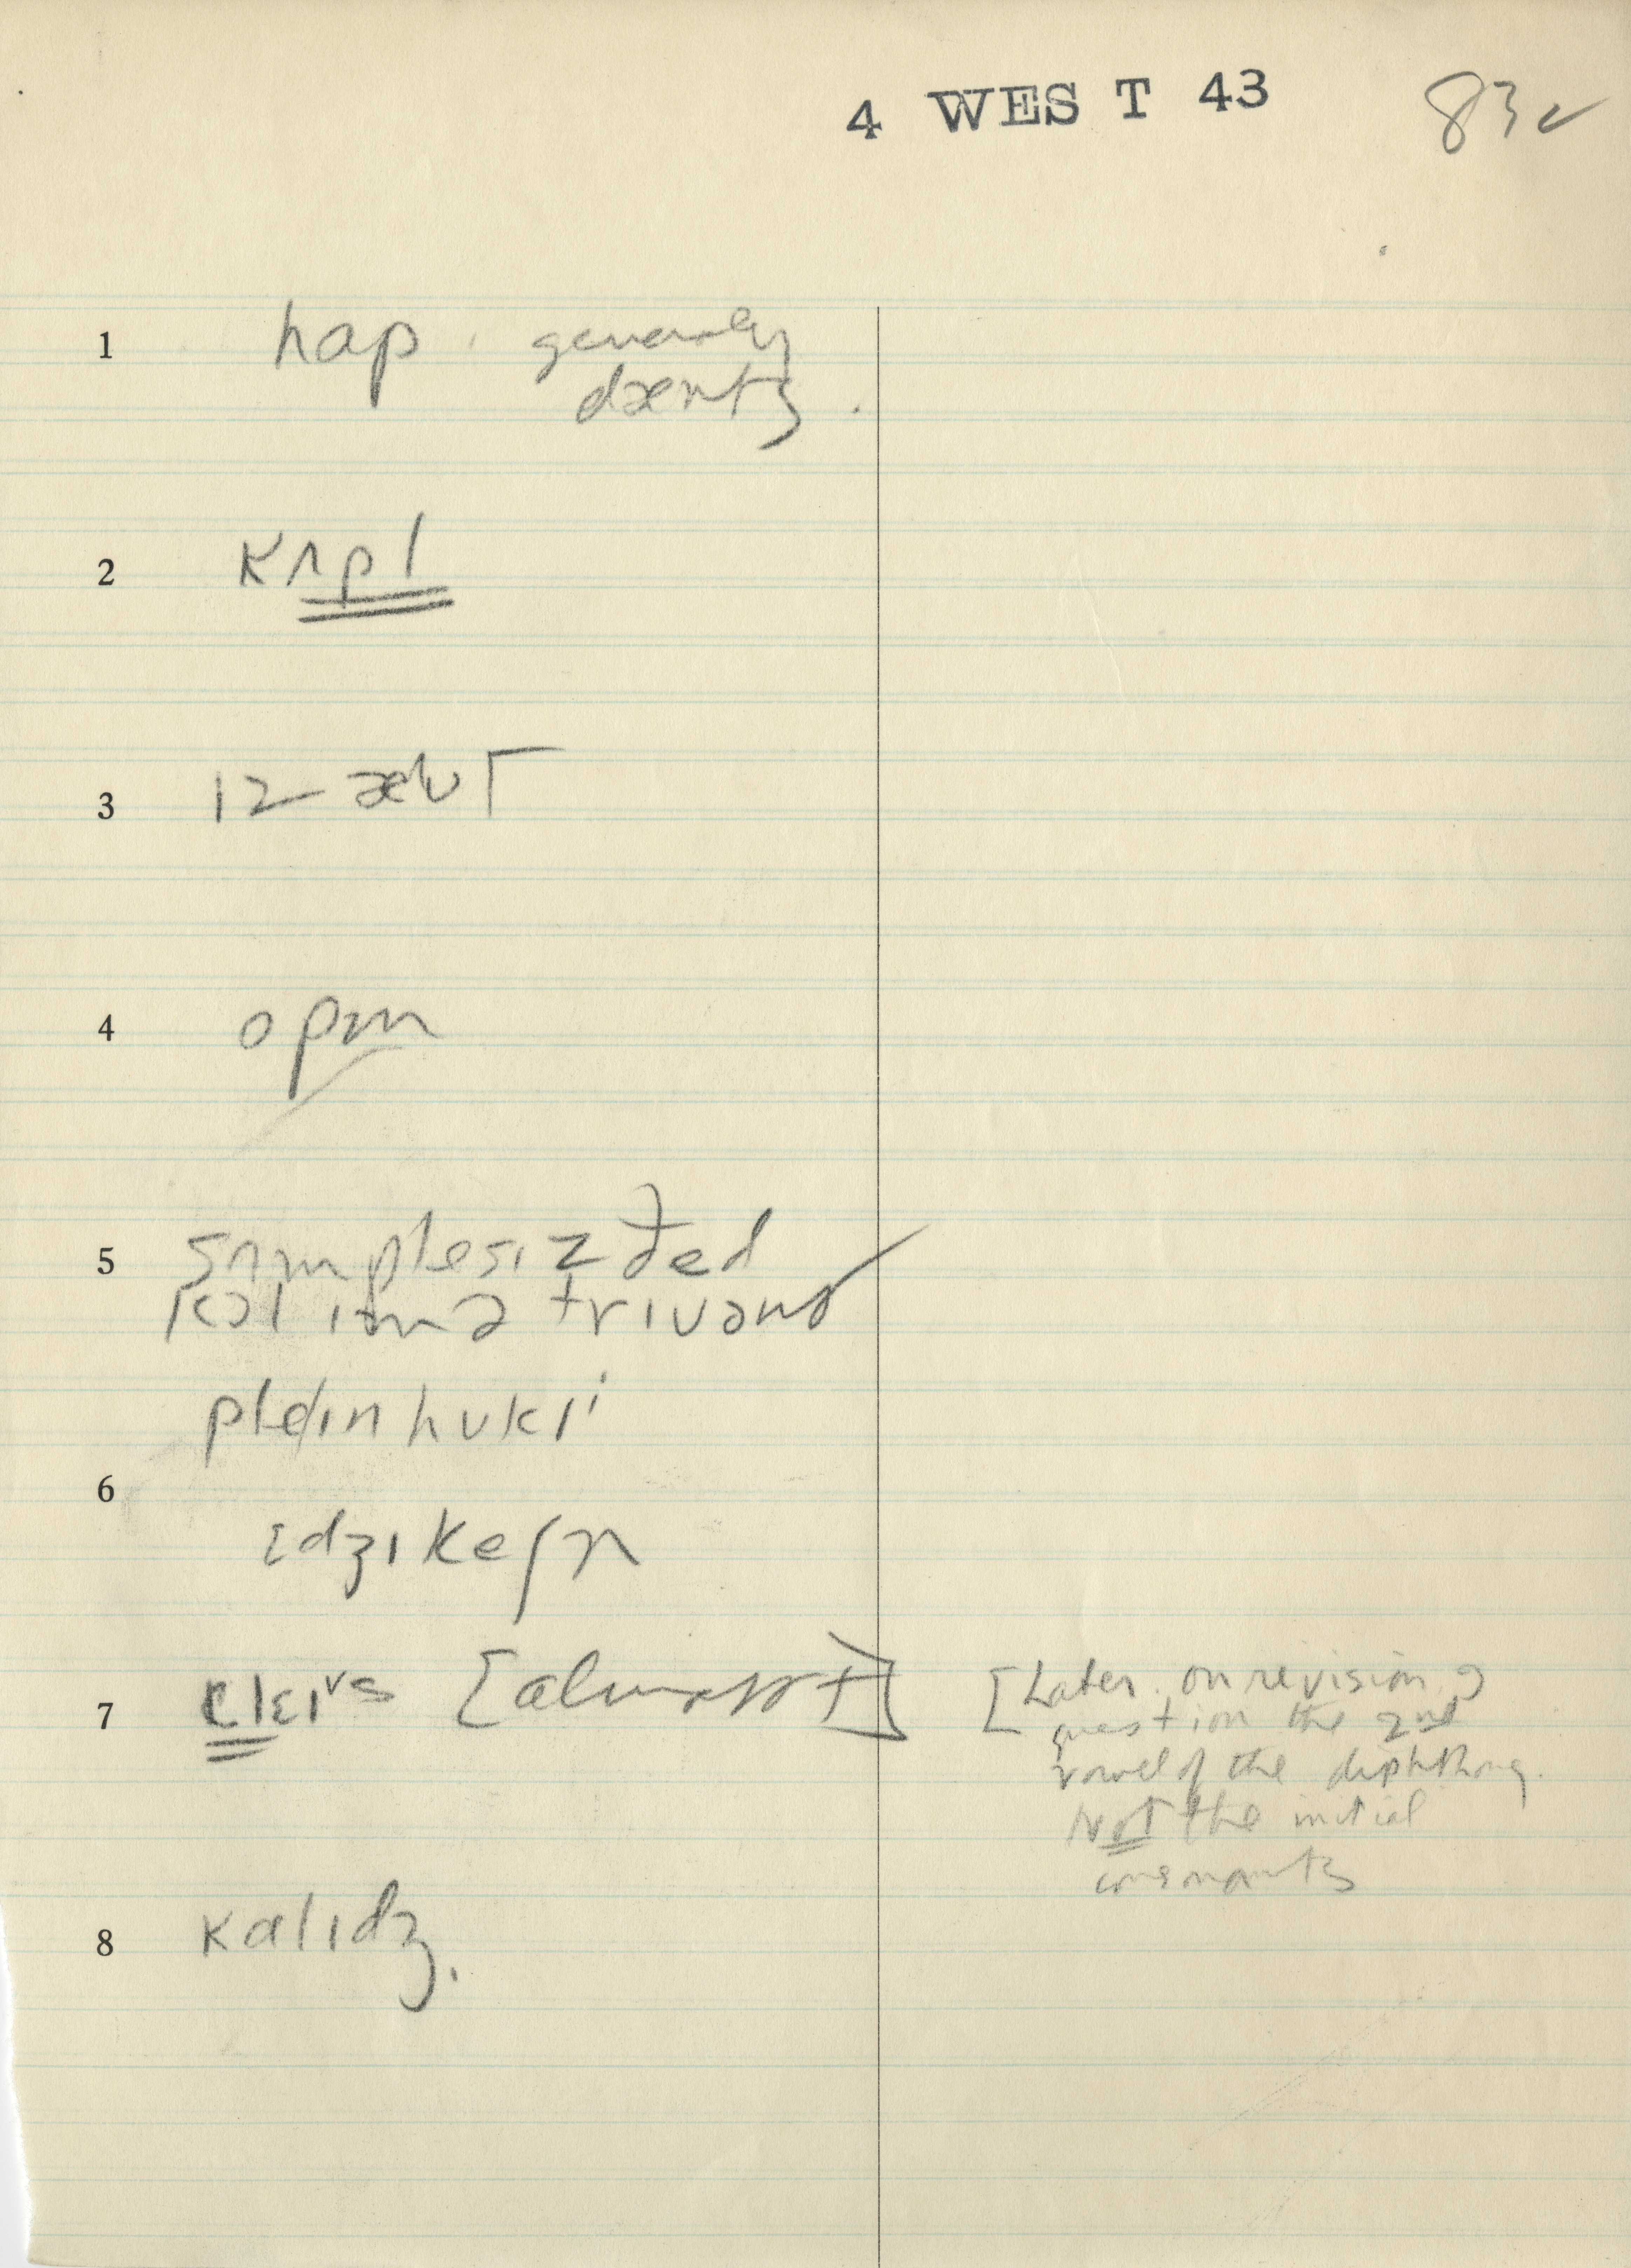 4 WEST 43 83 ✓
1 hap. generaly
dæntʒ.
2 kʌpl
3 ɪz
4 opm
5 sʌmplesɪz ðed
kɔl ɪtm ə trɪvənʒ
pleɪn hʊkɪi
6 ɛdʒɪkeʃn
7 klɛɪvs [almost] [Later on revision I
question the 2nd
vowel of the diphthong.
Not the initial
consonants
8 kalɪdʒ.